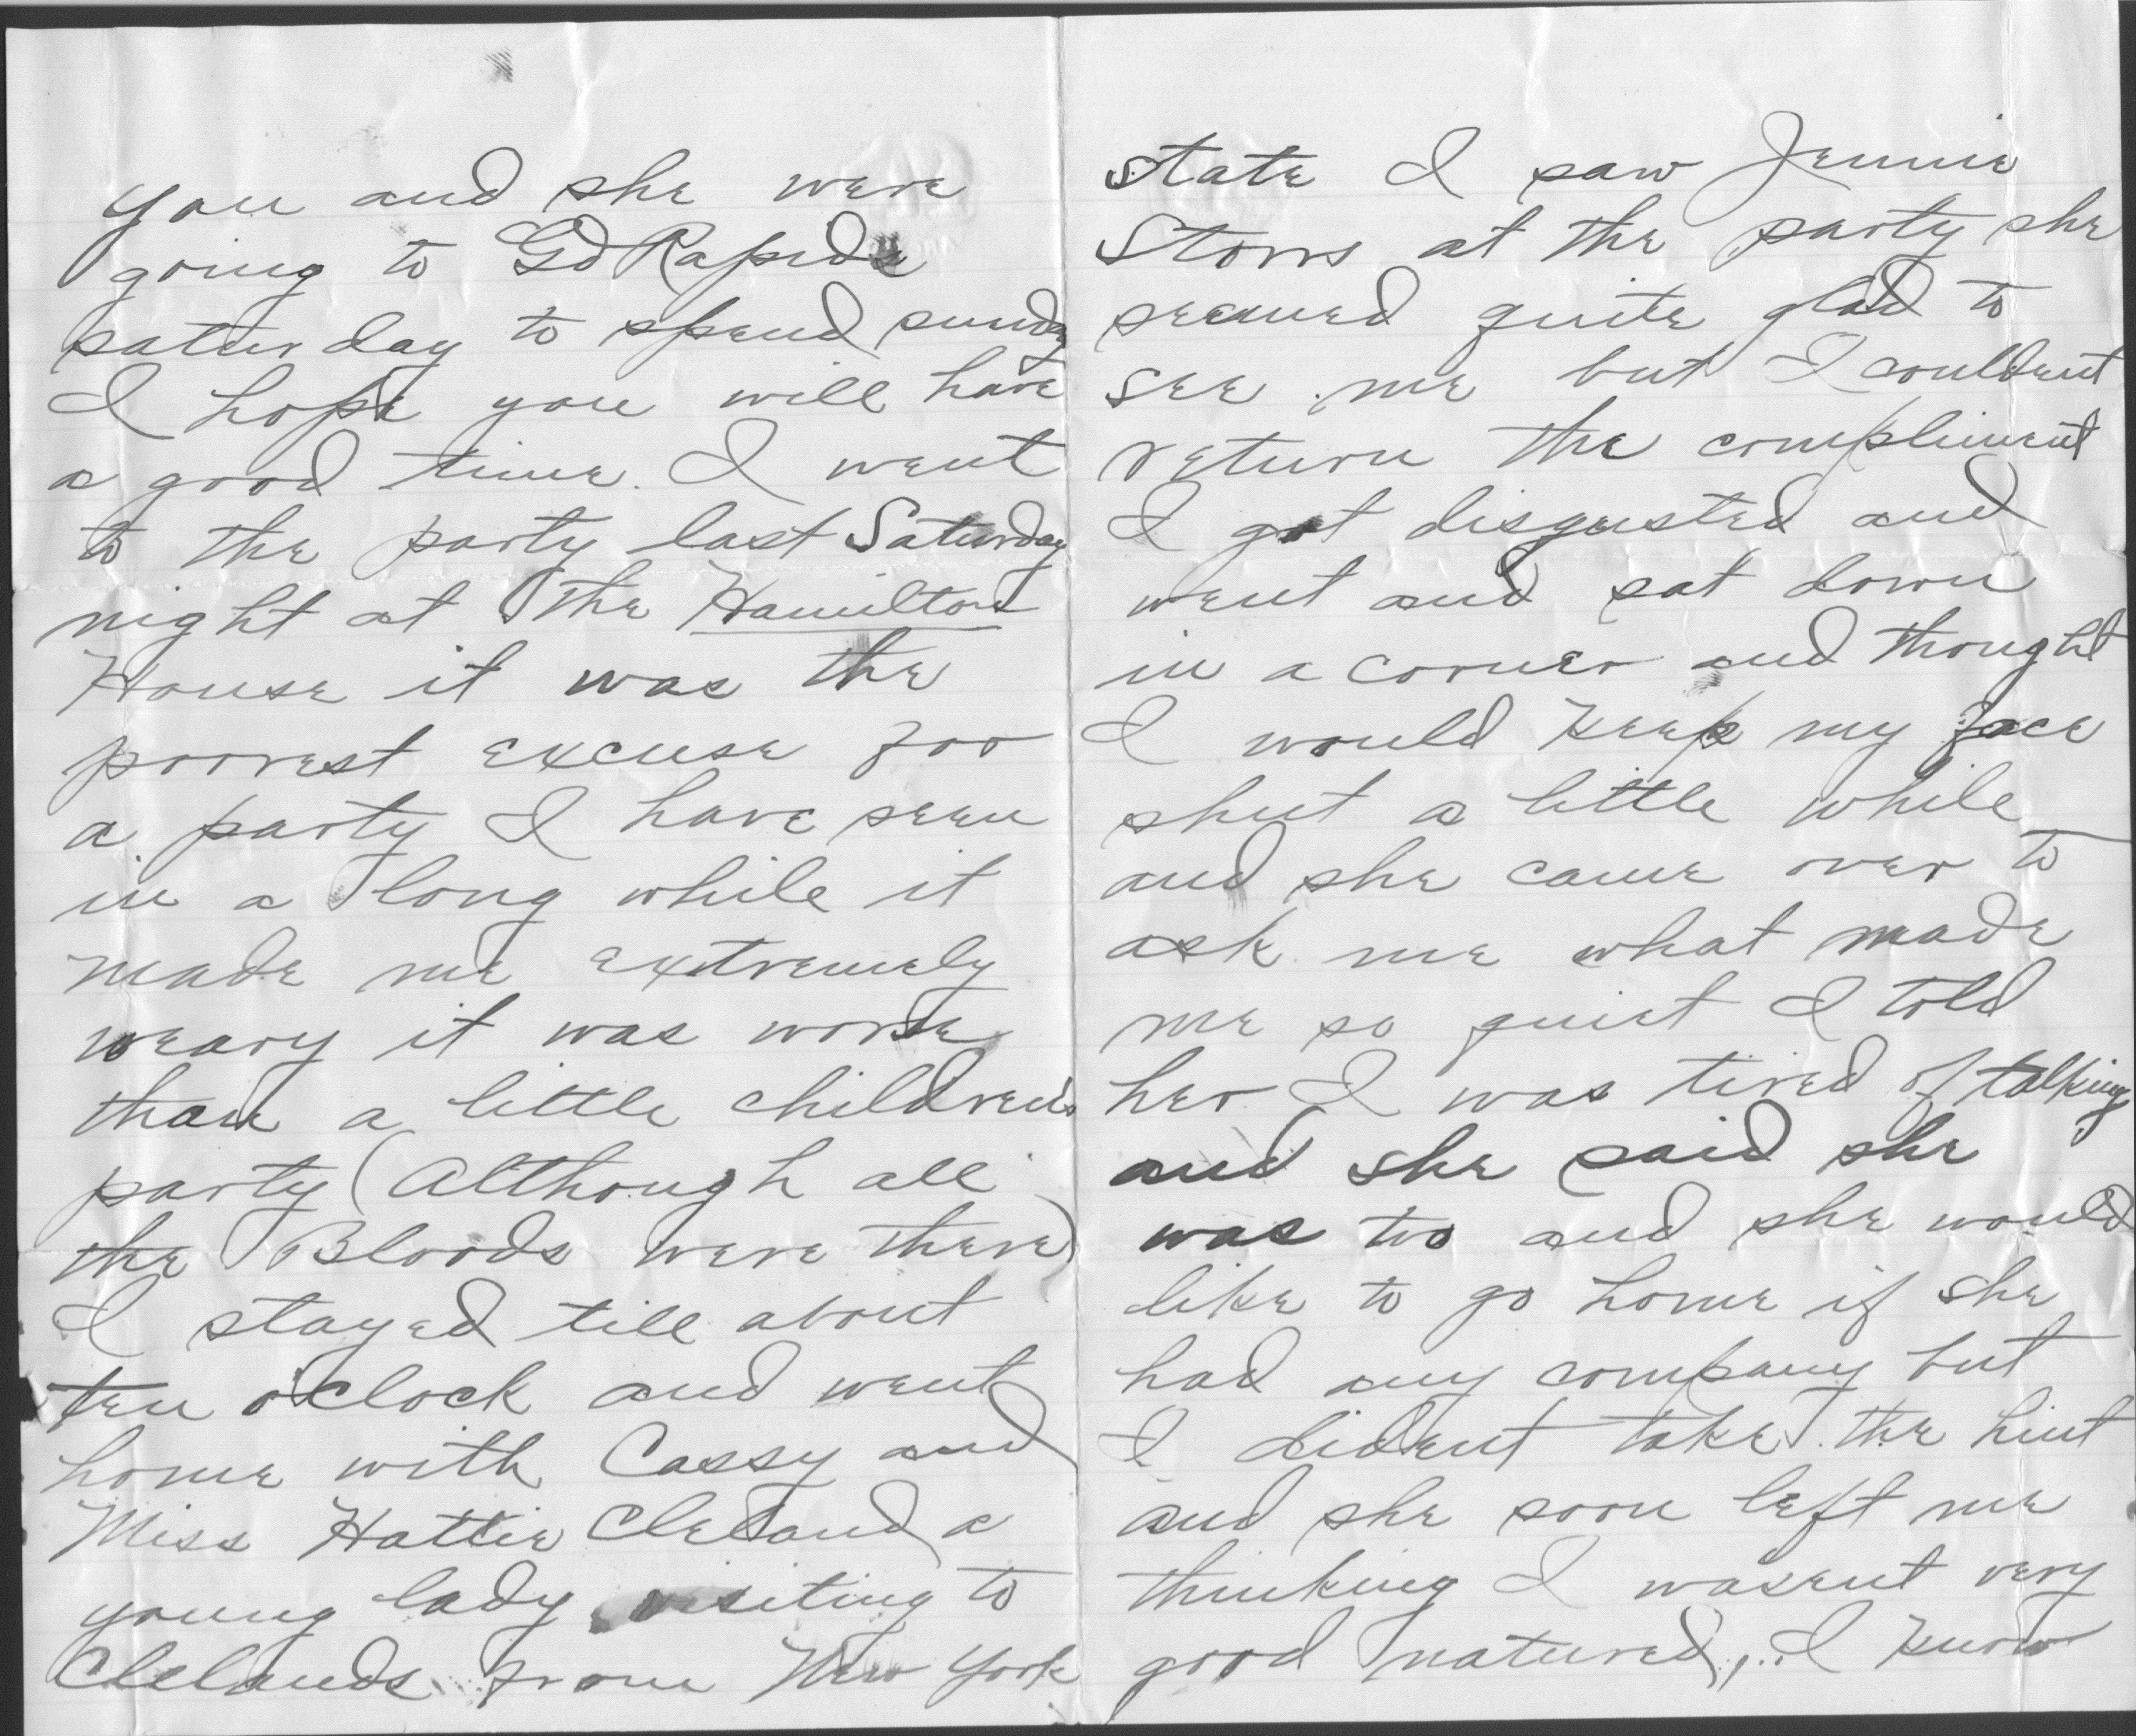 you and she were
going to Gd Rapids
saturday to spend sunday
I hope you will have
a good time. I went
to the party last Saturday
night at the Hamilton
House it was the
poorest excuse for
a party I have seen
in a long while it
made me extremely
weary it was worse
than a little children's
party (Although all
the Bloods were there)
I stayed till about
ten o'clock and went
home with Cassy and
Miss Hattie Cleland a
young lady visiting to
Clelands from New York
state I saw Jennie
Storrs at the party she
seemed quite glad to
see me but I couldent
return the compliment
I got disgusted and
went and sat down
in a corner and thought
I would keep my face
shut a little while
and she came over to
ask me what made
me so quiet I told
her I was tired of talking
and she said she
was too and she would
like to go home if she
had any company but
I dident take the hint
and she soon left me
thinking I wasent very
good natured, I know